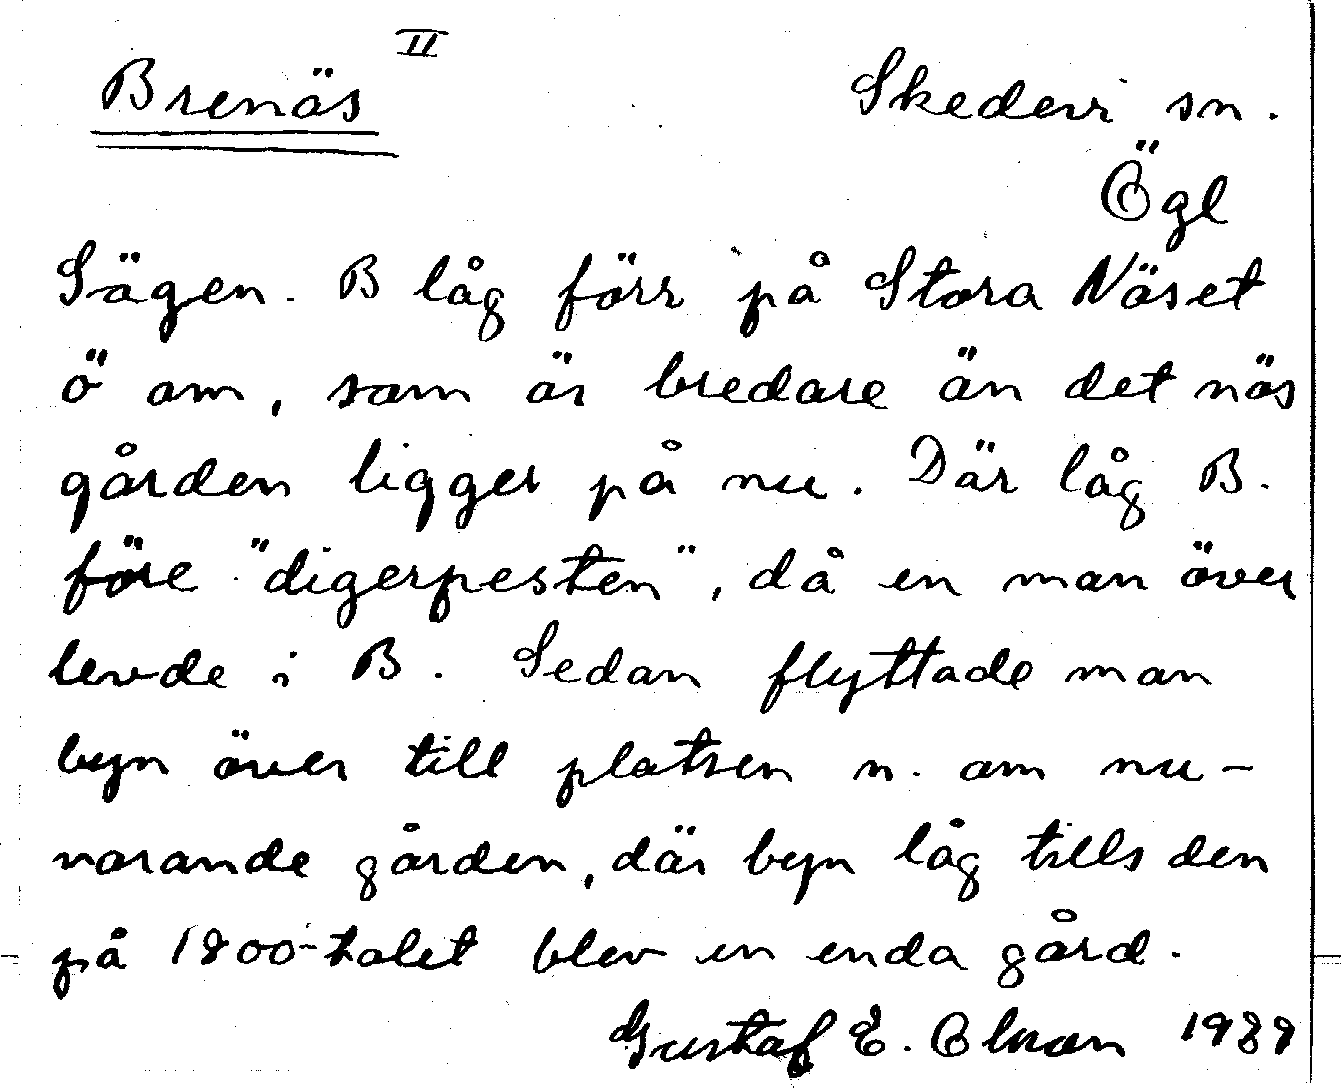 Brenäs II Skedevi sn.
Ögl
Sägen. B låg förr på Stora Näset
ö om, som är bredare än det näs
gården ligger på nu. Där låg B.
före "digerpesten", då en man över
levde i B. Sedan flyttade man
byn över till platsen n. om nu-
varande gården, där byn låg tills den
på 1800-talet blev en enda gård.
Gustaf E.